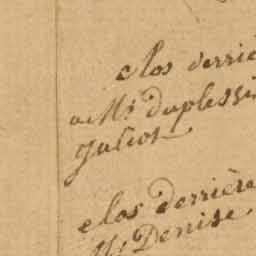 clos derriè
a Mr duplessi
Juliot
clos derrière
Mr Denise